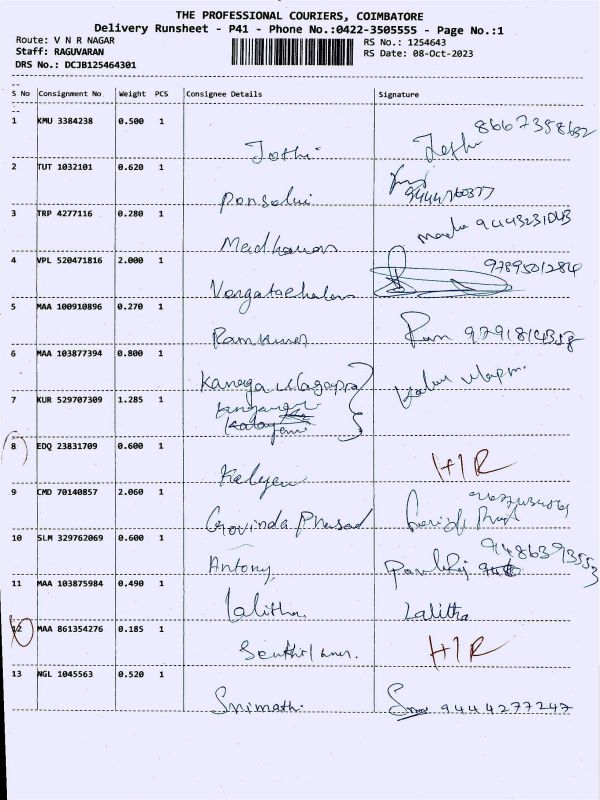 THE PROFESSIONAL COURIERS, COIMBATORE
Delivery Runsheet - P41 - Phone No.:0422-3505555 - Page No.:1
Route: V N R NAGAR
RS No.: 1254643
Staff: RAGUVARAN
RS Date: 08-Oct-2023
DRS No.: DCJB125464301
S No Consignment No Weight PCS Consignee Details Signature
1 KMU 3384238 0.500 1
Jothi
2 TUT 1032101 0.620 1
Ponselvi
3 TRP 4277116 0.280 1
Madhavan
4 VPL 520471816 2.000 1 9789501284
Vengatachalam
5 MAA 100910896 0.270 1
Ramkumar Ram
6 MAA 103877394 0.800 1
Kanaga
7 KUR 529707309 1.285 1
8 EDQ 23831709 0.600 1 H/R
Kalyani
9 CMD 70140857 2.060 1
Govinda Prasad
10 SLM 329762069 0.600 1
Antony
11 MAA 103875984 0.490 1
Lalitha Lalitha
12 MAA 861354276 0.185 1 H/R
13 NGL 1045563 0.520 1
Srimathi 9444277247